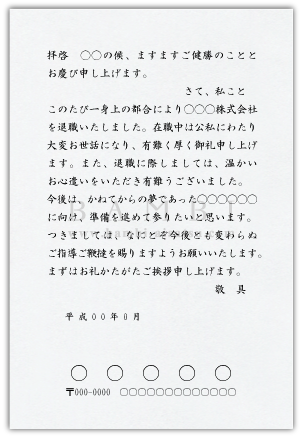 拝啓　○○の候、ますますご健勝のことと
お慶び申し上げます。
さて、私こと
このたび一身上の都合により○○○株式会社
を退職いたしました。在職中は公私にわたり
大変お世話になり、有難く厚く御礼申し上げ
ます。また、退職に際しましては、温かい
お心遣いをいただき有難うございました。
今後は、かねてからの夢であった○○○○○○
に向け、準備を進めて参りたいと思います。
つきましては、なにとぞ今後とも変わらぬ
ご指導ご鞭撻を賜りますようお願いいたします。
まずはお礼かたがたご挨拶申し上げます。
敬　具
平成００年０月
○　○　○　○　○
〒000-0000　○○○○○○○○○○○○○